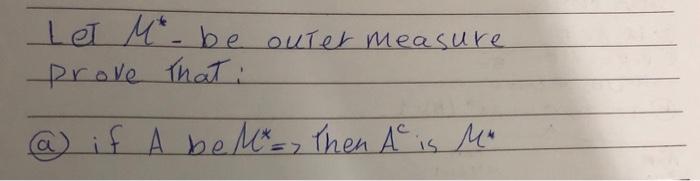 Let M*- be outer measure
prove that:
(a) if A be M* => Then Aᶜ is M*